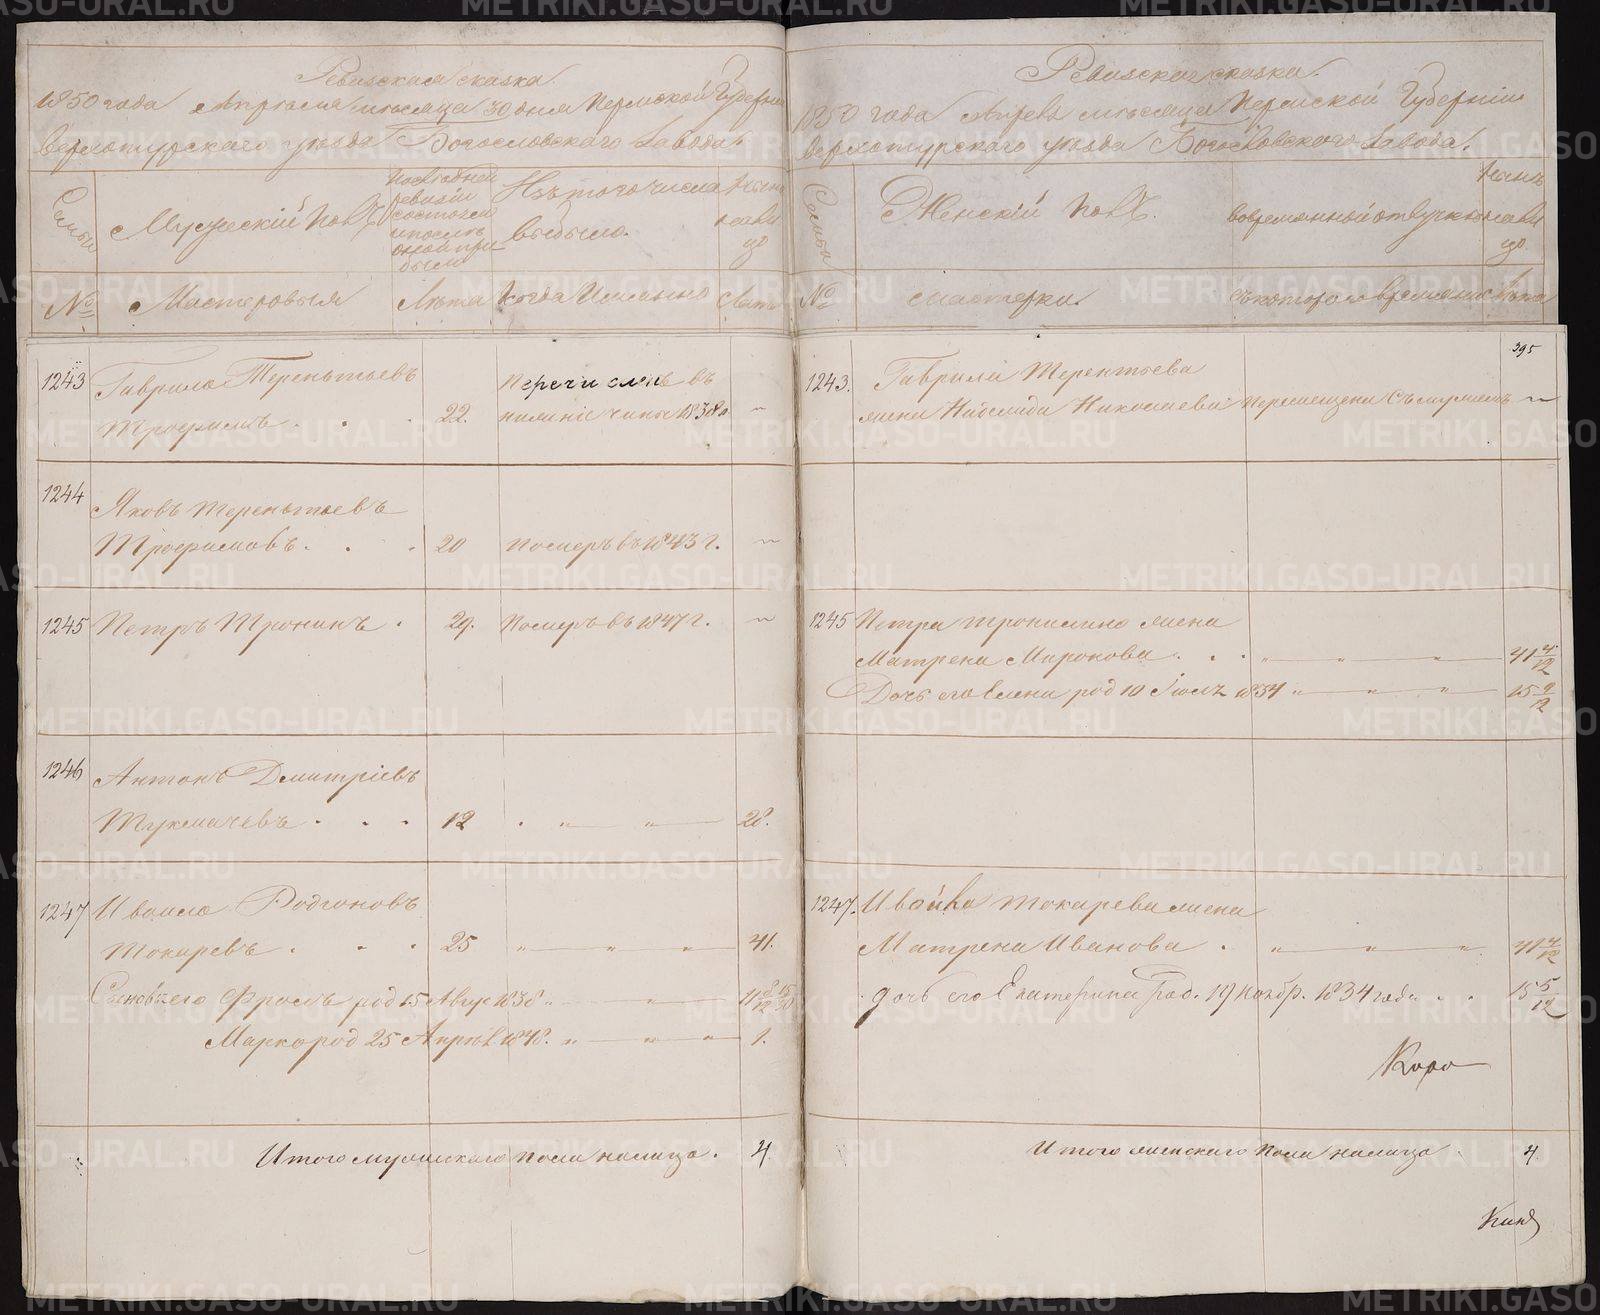 Ревизская сказка
1850 года Апреля месяца 30 дня Пермской Губернии
Верхотурского уезда Богословского Завода.
Семьи
Мужеский полъ
последней ревизiи состояло и после оной прибыло
Изъ того числа выбыло.
Ныне на лицо
№
Мастеровыя
Лета
Когда Имянно
Лета
1243
Гаврило Терентьевъ
Трофимовъ . . . 22. Перечисленъ въ нижнiе чины 1838 г.
1244
Яковъ Терентьевъ
Трофимовъ. . . 20 Померъ въ 1843 г.
1245 Петръ Тронинъ . 29. Померъ въ 1847 г.
1246
Антонъ Дмитрiевъ
Тукмачевъ . . . 12 28.
1247 Ивойло Родионовъ
Токаревъ . . . 25 41.
Сыновья его Фролъ род 15 Авгус 1838 11 8/12 15/30
Марко род 25 Апрел 1848. 1.
Итого мужескаго пола налицо. 4
Ревизская сказка.
1850 года Апрель месяца Пермской Губернiи
Верхотурского уезда Богословского Завода.
Семьи
Женскiй полъ.
во временной отлучке
Ныне на лицо
№
мастерки.
съ котораго времяни
Лета
395
1243. Гаврилы Терентьева
жена Николаева перемещена съ мужемъ
1245 Петра Тронина жена
Матрена Миронова . . . 41 4/12
Дочь его Елена род 10 Iюль 1834 15 9/12
1247. Ивойла Токарева жена
Матрена Иванова . 41 4/12
дочь его Екатерина род. 19 Ноябр. 1834 года . . 15 5/12
Коро
Итого женскаго пола налицо 4